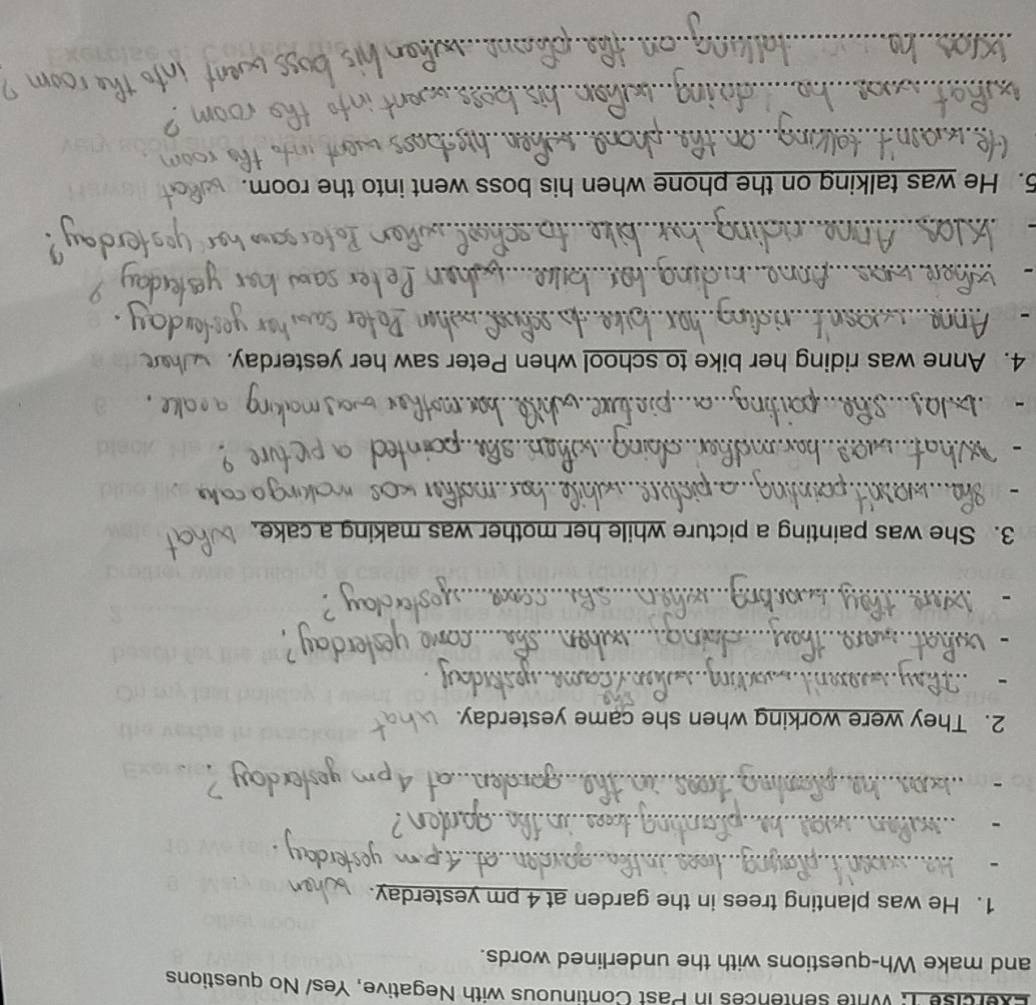 Exercise 1: Write sentences in Past Continuous with Negative, Yes/ No questions
and make Wh-questions with the underlined words.
1. He was planting trees in the garden at 4 pm yesterday. when
- He wasn't playing trees in the garden at 4 pm yesterday.
- when was he planting trees in the garden?
- was he planting trees in the garden at 4 pm yesterday?
2. They were working when she came yesterday. what
- They weren't working when she came yesterday.
- what were they doing when she came yesterday?
- were they working when she came yesterday?
3. She was painting a picture while her mother was making a cake. what
- She wasn't painting a picture while her mother was making a cake
- what was her mother doing when she painted a picture?
- was she paiting a picture while her mother was making a cake.
4. Anne was riding her bike to school when Peter saw her yesterday. where
- Anne wasn't riding her bike to school when Peter saw her yesterday.
- where was Anne riding her bike when Peter saw her yesterday?
- Was Anne riding her bike to school when Peter saw her yesterday?
5. He was talking on the phone when his boss went into the room. what
He wasn't talking on the phone when his boss went into the room.
what was he doing when his boss went into the room?
Was he talking on the phone when his boss went into the room?